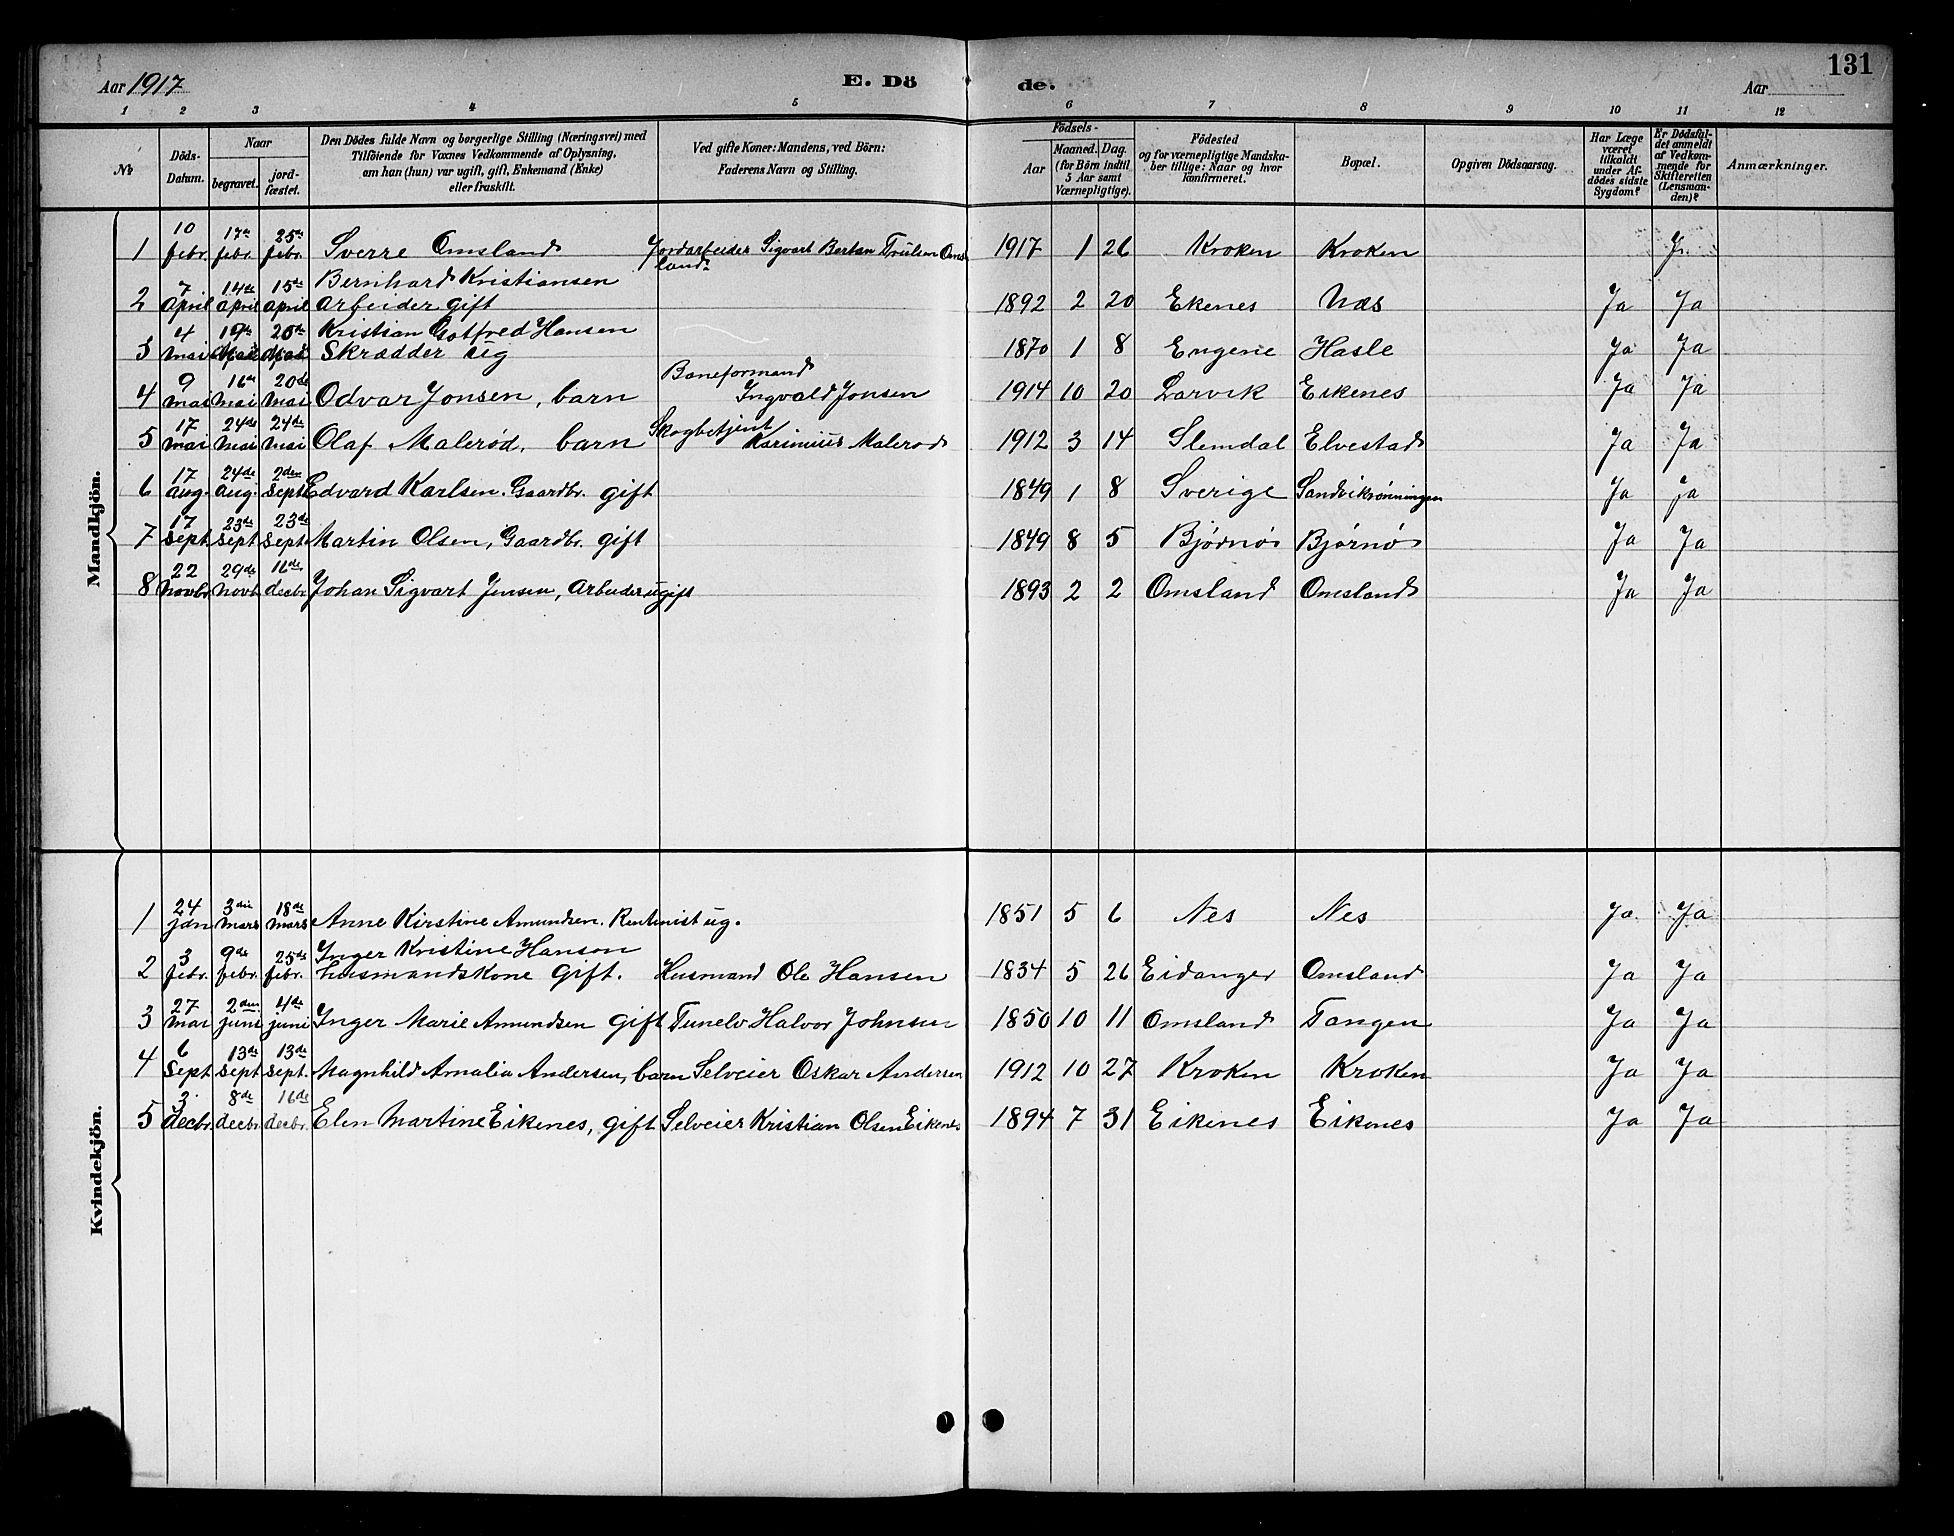 131
Aar 1917 E. Dö de. Aar
1 2 3 4 5 6 7 8 9 10 11 12
№ Döds-Datum. Naar begravet. jord-fæstet. Den Dödes fulde Navn og borgerlige Stilling (Næringsvei) med Tilföiende for Voxnes Vedkommende af Oplysning, om han (hun) var ugift, gift, Enkemand (Enke) eller fraskilt. Ved gifte Koner: Mandens, ved Börn: Faderens Navn og Stilling. Födsels- Aar Maaned. Dag. (for Börn indtil 5 Aar samt Værnepligtige). Födested og for værnepligtige Mandska-ber tillige: Naar og hvor konfirmeret. Bopæl. Opgiven Dödsaarsag. Har Læge været tilkaldt under Af-dödes sidste Sygdom? Er Dödsfal-det anmeldt af Vedkom-mende for Skifteretten (Lensman-den)? Anmærkninger.
Mandkjön.
1 10 febr. 17de febr. 25de febr. Sverre Omsland Jordarbeider Sigvart Bertan Trulsen Omsland 1917 1 26 Kroken Kroken Ja.
2 7 April 14de April 15de April Bernhard Kristiansen Arbeider gift 1892 2 20 Ekenes Næs Ja Ja
3 4 mai 19de Mai 20de Mai Kristian Gotfred Hansen Skrædder ug 1870 1 8 Engene Hasle Ja Ja
4 9 mai 16de Mai 20de Mai Odvar Jonsen, barn Baneformand Ingvald Jonsen 1914 10 20 Larvik Eikenes Ja Ja
5 17 mai 24de Mai 24de Mai Olaf Malerød, barn Skogbetjent Karinius Malerød 1912 3 14 Slemdal Elvestad Ja Ja
6 17 aug. 24de aug. 2den Sept Edvard Karlsen. Gaardbr. gift 1849 1 8 Sverige Sandvikrønningen Ja ja
7 17 Sept. 23de Sept 23de Sept Martin Olsen, Gaardbr. gift 1849 8 5 Bjørnø Bjørnø Ja Ja
8 22 Novbr 29de Novb 16de decbr Johan Sigvart Jensen, Arbeider ugift 1893 2 2 Omsland Omsland Ja Ja
Kvindekjön.
1 24 jan 3die Mars 18de Mars Anne Kirstine Amundsen. Rentenist ug. 1851 5 6 Nes Nes Ja Ja
2 3 febr. 9de febr. 25de febr. Inger Kristine Hanson husmandskone gift. Husmand Ole Hansen 1834 5 26 Eidanger Omsland Ja Ja
3 27 Mai 2den juni 4de juni Inger Marie Amundsen gift Tunelv Halvor Johnsen 1850 10 11 Omsland Tangen Ja Ja
4 6 Sept 13de Sept 13de Sept. Magnhild Amalia Andersen, barn Selveier Oskar Andersen 1912 10 27 Kroken Kroken Ja Ja
5 3. decbr. 8de decbr. 16de decbr. Elen Martine Eikenes, gift Selveier Kristian Olsen Eikenes 1894 7 31 Eikenes Eikenes Ja Ja